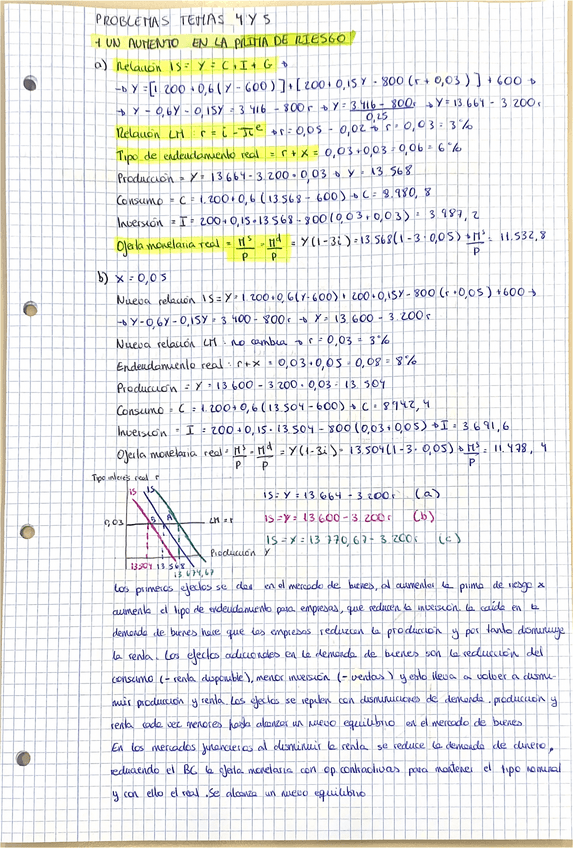 PROBLEMAS TEMAS 4 Y 5
1 UN AUMENTO EN LA PRIMA DE RIESGO
a) Relación IS = Y = C + I + G →
→ Y = [1.200 + 0,6(Y - 600)] + [200 + 0,15Y - 800(r + 0,03)] + 600 →
→ Y - 0,6Y - 0,15Y = 3416 - 800r → Y = 3416 - 800r / 0,25 → Y = 13664 - 3.200r
Relación LM = r = i - πᵉ → r = 0,05 - 0,02 → r = 0,03 = 3%
Tipo de endeudamiento real = r + x = 0,03 + 0,03 = 0,06 = 6%
Producción = Y = 13664 - 3.200 · 0,03 → Y = 13.568
Consumo = C = 1.200 + 0,6(13.568 - 600) → C = 8.980,8
Inversión = I = 200 + 0,15 · 13568 - 800(0,03 + 0,03) = 3987,2
Oferta monetaria real = Mˢ/P = Mᵈ/P = Y(1 - 3i) = 13568(1 - 3 · 0,05) → Mˢ/P = 11.532,8
b) x = 0,05
Nueva relación IS = Y = 1.200 + 0,6(Y - 600) + 200 + 0,15Y - 800(r + 0,05) + 600 →
→ Y - 0,6Y - 0,15Y = 3400 - 800r → Y = 13.600 - 3.200r
Nueva relación LM: no cambia → r = 0,03 = 3%
Endeudamiento real: r + x = 0,03 + 0,05 = 0,08 = 8%
Producción = Y = 13600 - 3200 · 0,03 = 13504
Consumo = C = 1.200 + 0,6(13.504 - 600) → C = 8942,4
Inversión = I = 200 + 0,15 · 13.504 - 800(0,03 + 0,05) → I = 3.691,6
Oferta monetaria real = Mˢ/P = Mᵈ/P = Y(1 - 3i) = 13504(1 - 3 · 0,05) → Mˢ/P = 11.478,4
Tipo interés real r
IS IS
0,03 B A LM = r
Producción Y
13504 13.568
13.674,67
IS = Y = 13664 - 3.200r (a)
IS = Y = 13600 - 3.200r (b)
IS = Y = 13770,67 - 3.200r (c)
Los primeros efectos se dan en el mercado de bienes, al aumentar la prima de riesgo x
aumenta el tipo de endeudamiento para empresas, que reducen la inversión. La caída en la
demanda de bienes hace que las empresas reduzcan la producción y por tanto disminuye
la renta. Los efectos adicionales en la demanda de bienes son la reducción del
consumo (- renta disponible), menor inversión (- ventas) y esto lleva a volver a dismi-
nuir producción y renta. Los efectos se repiten con disminuciones de demanda, producción y
renta cada vez menores hasta alcanzar un nuevo equilibrio en el mercado de bienes
En los mercados financieros al disminuir la renta se reduce la demanda de dinero,
reduciendo el BC la oferta monetaria con op. contractivas para mantener el tipo nominal
y con ello el real. Se alcanza un nuevo equilibrio